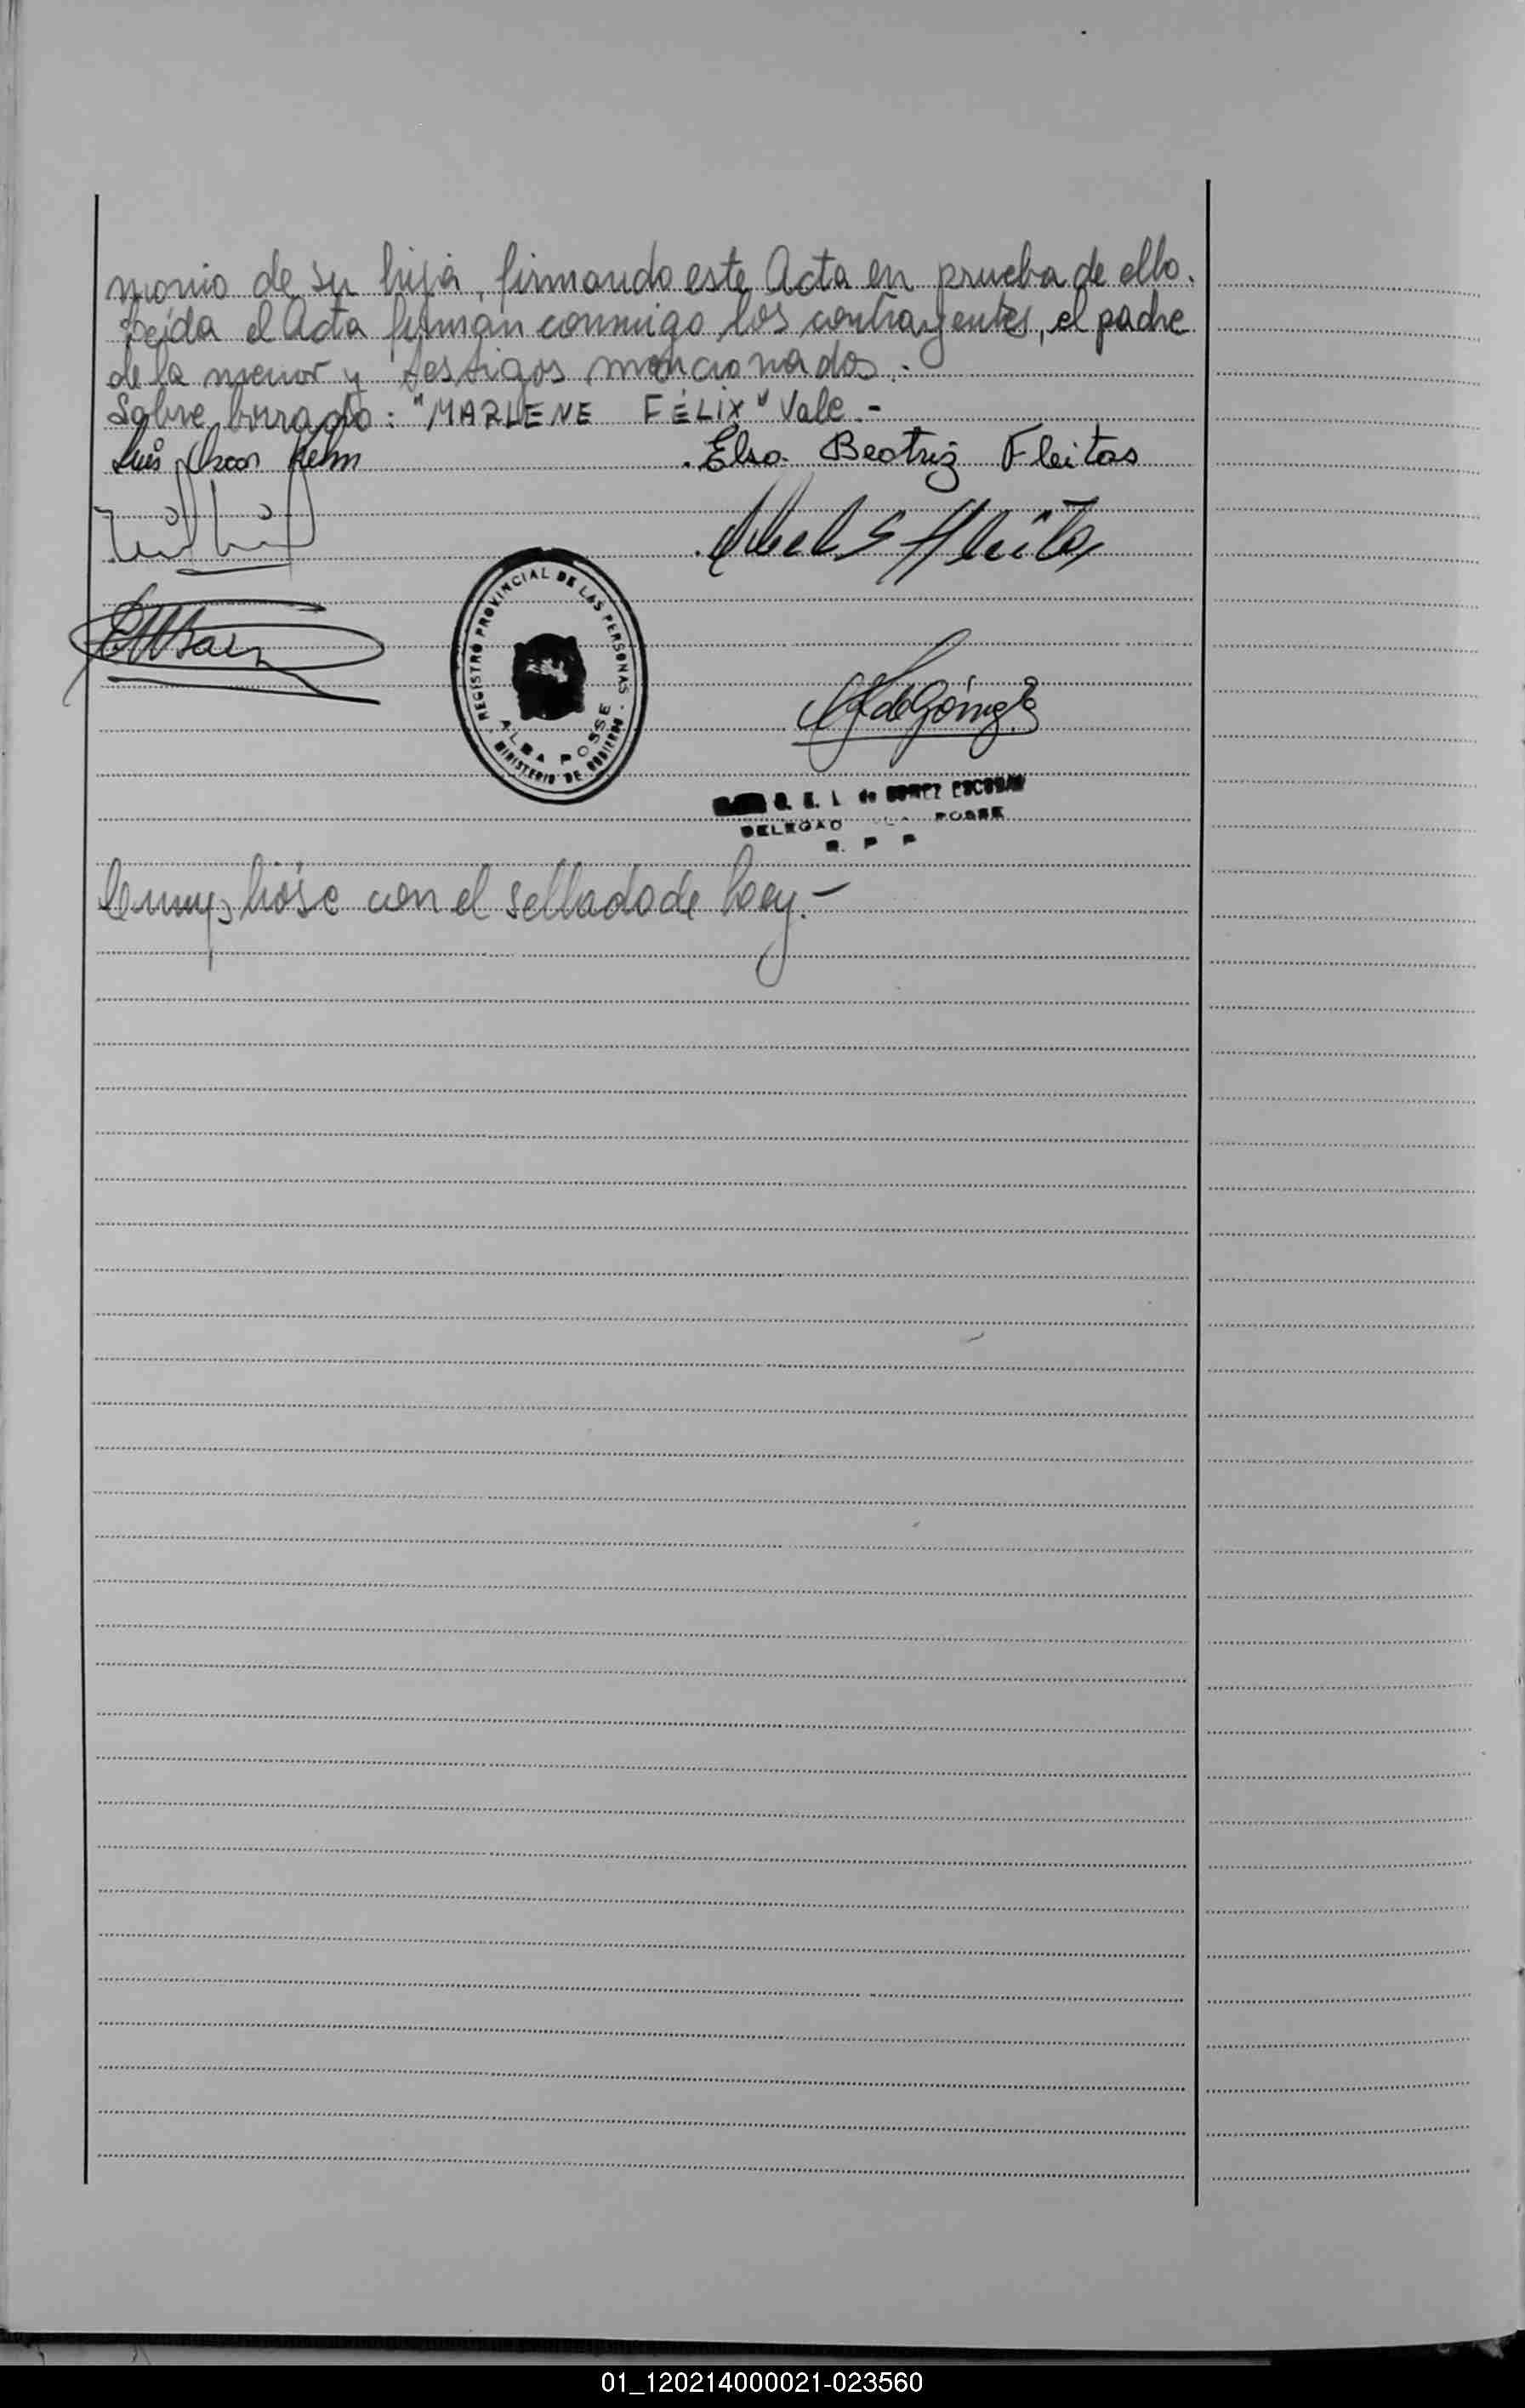 monio de su hija, firmando este Acta en prueba de ello.
Leída el Acta firman conmigo los contrayentes, el padre
de la menor y testigos mencionados.-
Sobre borrado: "MARLENE FÉLIX" Vale.-
Luis Oscar Kehn
Elsa Beatriz Fleitas
REGISTRO PROVINCIAL DE LAS PERSONAS -
ALBA POSSE
MINISTERIO DE GOBIERNO
de Gómez
de GOMEZ ESCOBAR
DELEGAD POSSE
R. P P
Cumplióse con el sellado de ley.-
01_120214000021-023560